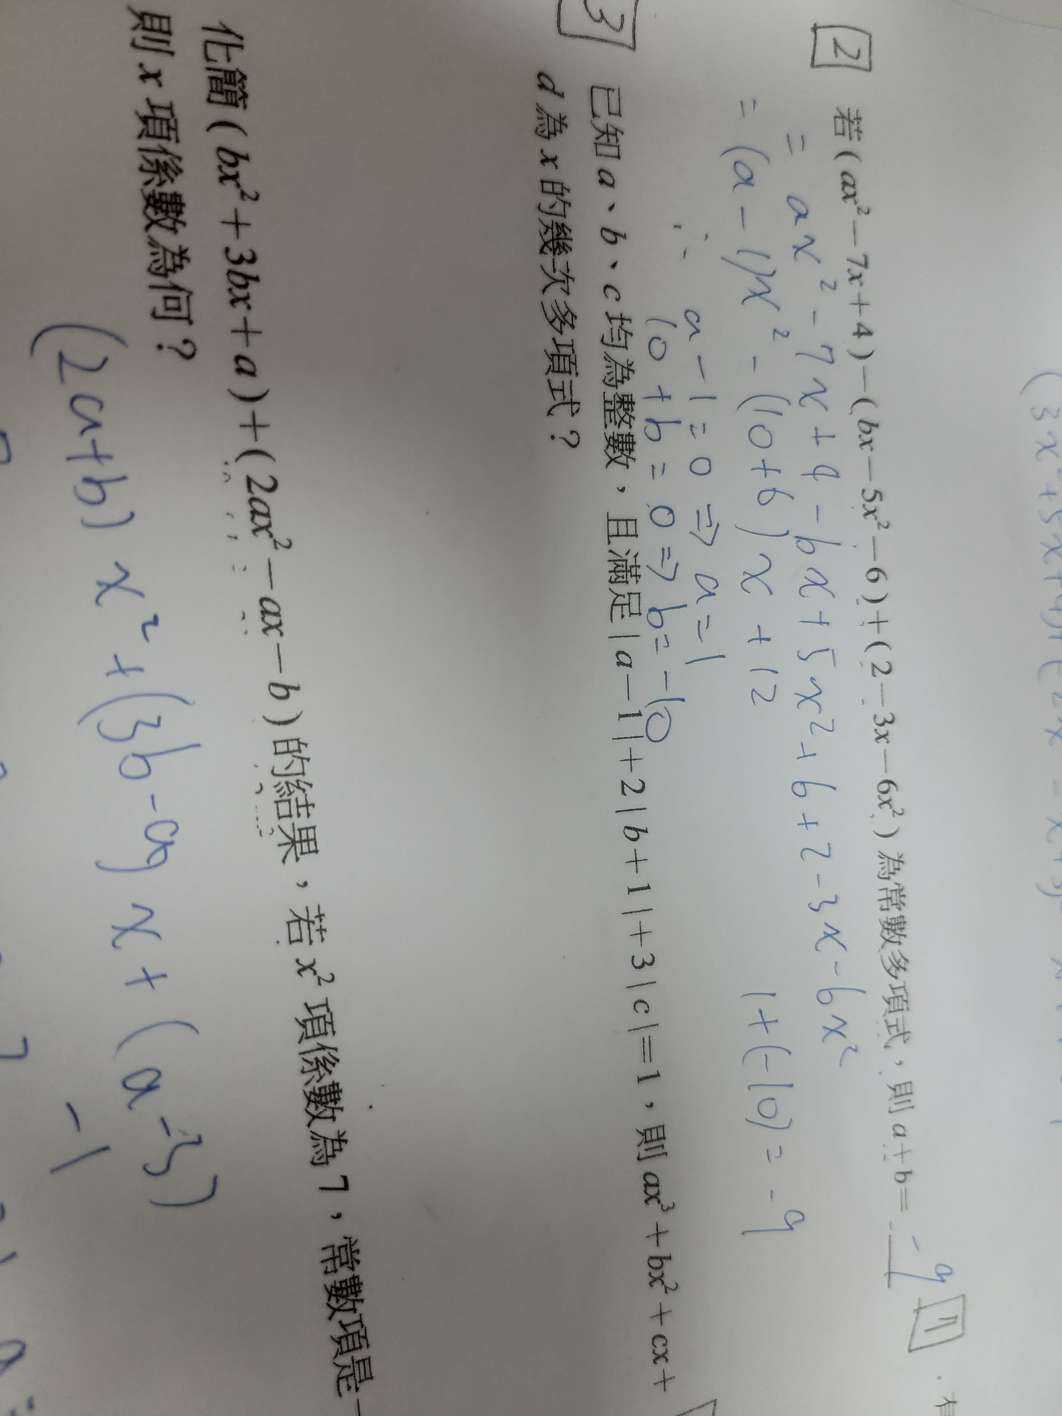 (3x²+5x+9)+(2x - x+3)
2 若(ax²－7x+4)－(bx－5x²－6)+(2－3x－6x²)為常數多項式，則a+b= -9
= ax²-7x+4-bx+5x²+6+2-3x-6x²
= (a-1)x²-(10+b)x+12
1+(-10)=-9
∴ a-1=0⇒a=1
10+b=0⇒b=-10
3 已知a、b、c均為整數，且滿足|a－1|+2|b+1|+3|c|=1，則ax³+bx²+cx+
d為x的幾次多項式？
化簡(bx²+3bx+a)+(2ax²－ax－b)的結果，若x²項係數為7，常數項是－
則x項係數為何？
(2a+b)x²+(3b-a)x+(a-3)
7 -1